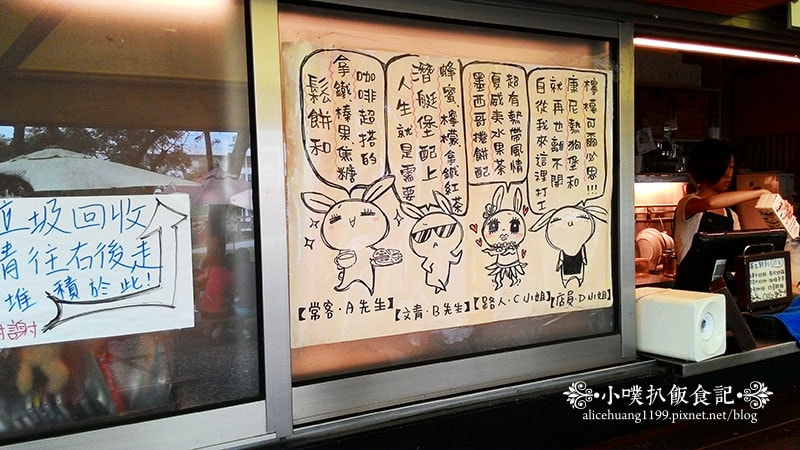 垃圾回收
請往右後走
堆積於此!
謝謝
鬆餅和
拿鐵榛果焦糖
咖啡超搭的
人生就是需要
潛艇堡配上
蜂蜜檸檬拿鐵紅茶
墨西哥捲餅配
夏威夷水果茶
超有熱帶風情
自從我來這裡打工
就再也離不開
康尼熱狗堡和
檸檬可爾必思!!!
【常客·A先生】
【文青·B先生】
【路人·C小姐】
【店員·D小姐】
·小噗扒飯食記·
alicehuang1199.pixnet.net/blog